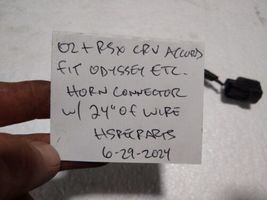 02+ RSX CRV ACCORD
FIT ODYSSEY ETC.
HORN CONNECTOR
W/ 24" OF WIRE
HSPECPARTS
6-29-2024